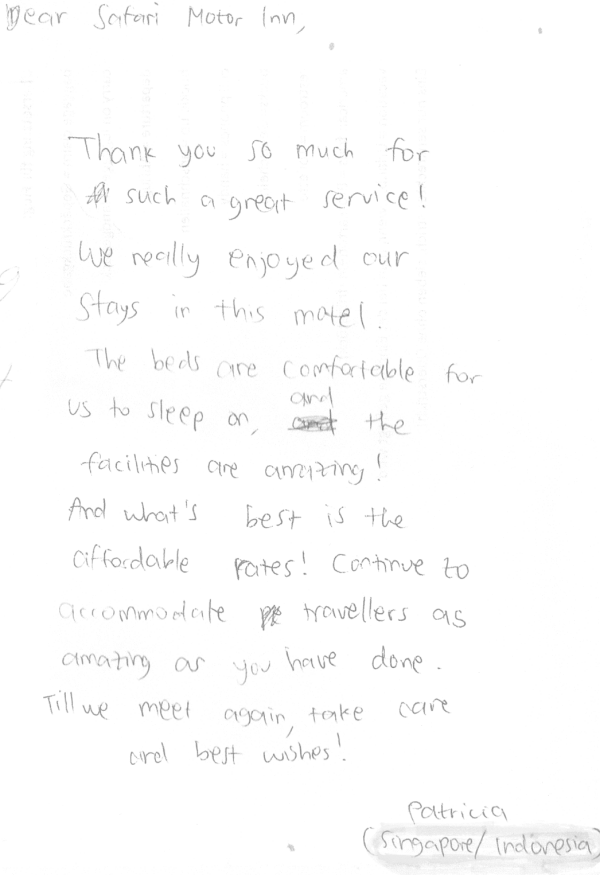 Dear Safari Motor Inn,
Thank you so much for
such a great service!
We really enjoyed our
stays in this motel.
The beds are comfortable for
us to sleep on, and the
facilities are amazing!
And what's best is the
affordable rates! Continue to
accommodate travellers as
amazing as you have done.
Till we meet again, take care
and best wishes!
Patricia
(Singapore/Indonesia)